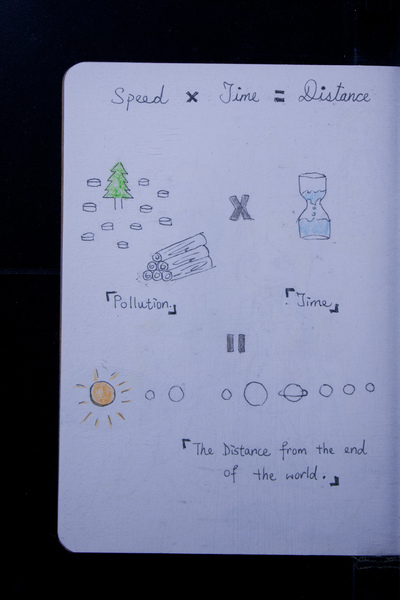 Speed × Time = Distance
×
「Pollution」
「Time」
=
「The Distance from the end
of the world.」